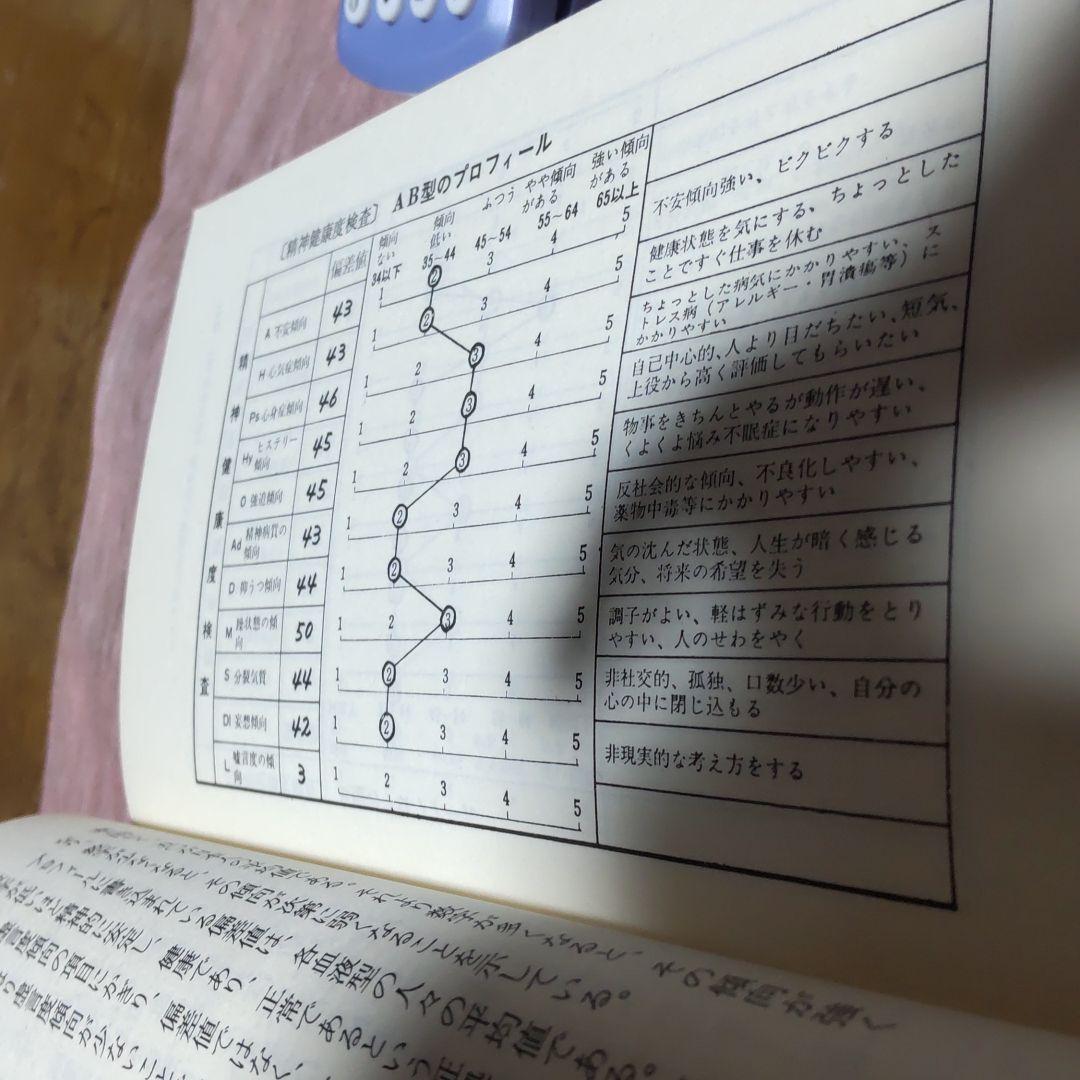 〔精神健康度検査〕 AB型のプロフィール
偏差値
傾向ない 34以下
傾向低い 35~44
ふつう 45~54
やや傾向がある 55~64
強い傾向がある 65以上
精神健康度検査
A 不安傾向 43
1 ② 3 4 5
不安傾向強い、ビクビクする
H 心気症傾向 43
1 ② 3 4 5
健康状態を気にする、ちょっとした
ことですぐ仕事を休む
Ps 心身症傾向 46
1 2 ③ 4 5
ちょっとした病気にかかりやすい、ス
トレス病(アレルギー・胃潰瘍等)に
かかりやすい
Hy ヒステリー傾向 45
1 2 ③ 4 5
自己中心的、人より目だちたい、短気、
上役から高く評価してもらいたい
O 強迫傾向 45
1 2 ③ 4 5
物事をきちんとやるが動作が遅い、
くよくよ悩み不眠症になりやすい
Ad 精神病質の傾向 43
1 ② 3 4 5
反社会的な傾向、不良化しやすい、
薬物中毒等にかかりやすい
D 抑うつ傾向 44
1 ② 3 4 5
気の沈んだ状態、人生が暗く感じる
気分、将来の希望を失う
M 躁状態の傾向 50
1 2 ③ 4 5
調子がよい、軽はずみな行動をとり
やすい、人のせわをやく
S 分裂気質 44
1 ② 3 4 5
非社交的、孤独、口数少い、自分の
心の中に閉じ込もる
Dl 妄想傾向 42
1 ② 3 4 5
非現実的な考え方をする
L 嘘言度の傾向 3
1 2 3 4 5
それより数字が多くなると、その傾向が強く
その傾向が次第に弱くなることを示している。
プロフィールに書き込まれている偏差値は、各血液型の人々の平均値である。
が低いほど精神的に安定し、健康であり、正常であるという
嘘言度傾向の項目にかぎり、偏差値ではなく、
嘘言度傾向が少ないこと